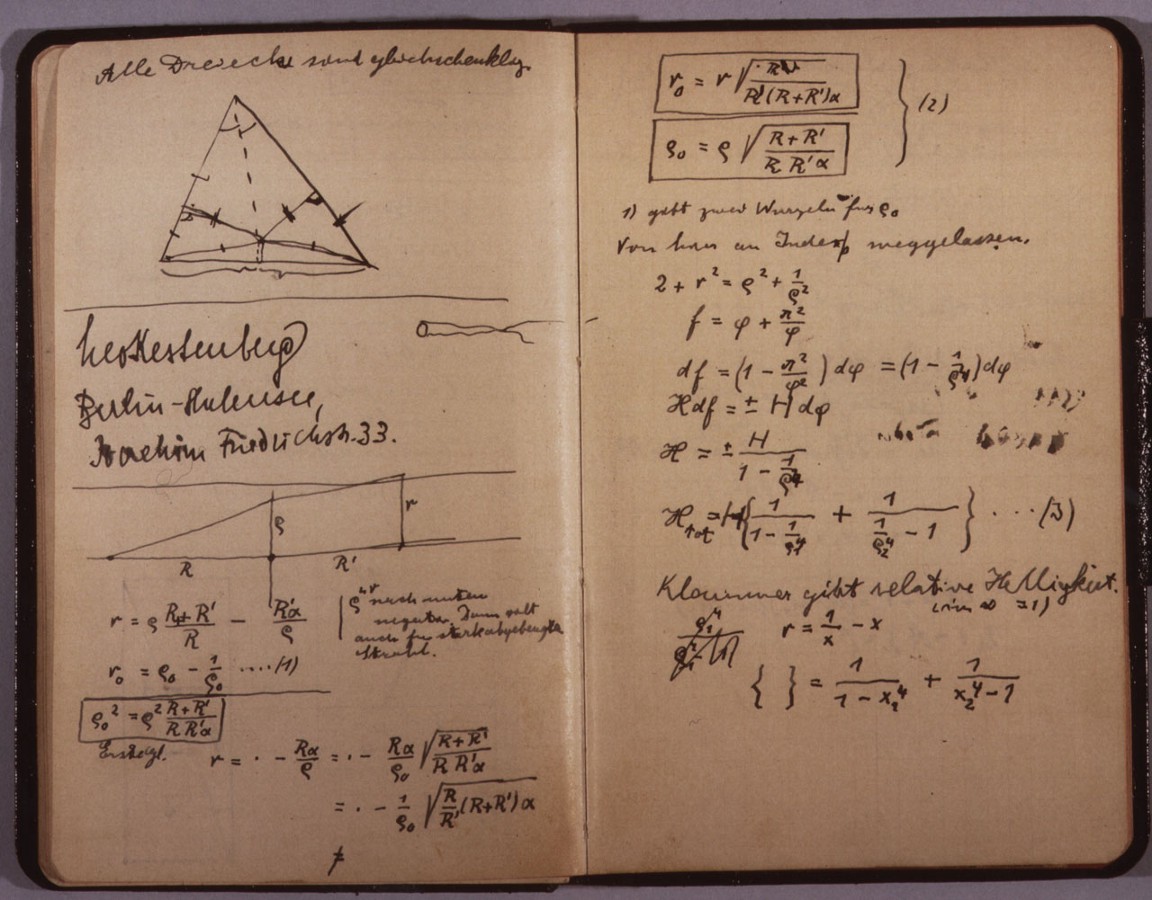 Alle Dreiecke sind gleichschenklig.
Leo Kestenberg
Berlin-Halensee,
Joachim Friedrichstr. 33.
ρ
r
R
R'
r = ρ (R+R')/R − R'α/ρ
ρ nach unten
negativ. Dann gilt
auch für stark abgebeugten
Strahl.
r₀ = ρ₀ − 1/ρ₀ ....(1)
ρ₀² = ρ² (R+R')/(R R'α)
r = · − Rα/ρ = · − Rα/ρ₀ √((R+R')/(R R'α))
= · − 1/ρ₀ √(R/R' (R+R')α)
r₀ = r √(R/(R'(R+R')α))
ρ₀ = ρ √((R+R')/(R R'α))
} (2)
1) gibt zwei Wurzeln für ρ₀
Von hier an Index weggelassen.
2 + r² = ρ² + 1/ρ²
f = φ + π²/φ
df = (1 − π²/φ²) dφ = (1 − 1/ρ⁴) dφ
ℋ df = ± H dφ
ℋ = ± H/(1 − 1/ρ⁴)
ℋ_tot = H {1/(1 − 1/ρ₁⁴) + 1/(1/ρ₂⁴ − 1)} ... (3)
Klammer gibt relative Helligkeit.
(im ∞ = 1)
r = 1/x − x
{ } = 1/(1 − x₁⁴) + 1/(x₂⁴ − 1)